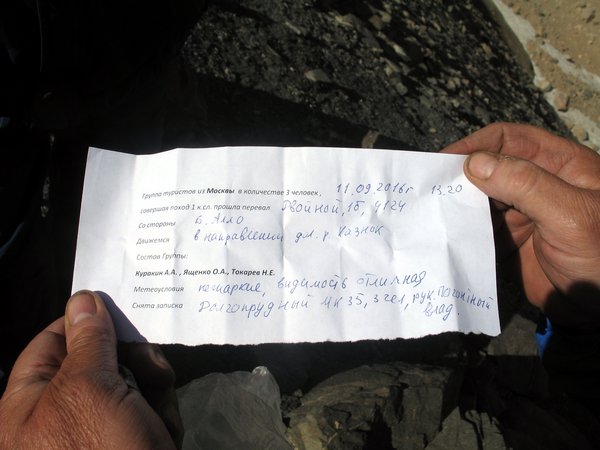 Группа туристов из Москвы в количестве 3 человек, 11.09.2016г 13.20
совершая поход 1 к.сл. прошла перевал Двойной, 1б, 4124
Со стороны Б. Алло
Движемся в направлении дл. р. Казнок
Состав Группы:
Куракин А.А. , Ященко О.А., Токарев Н.Е.
Метеоусловия пежаркие, видимость отличная
Снята записка Долгопрудный МК 35, 3 чел, рук.
Влад.